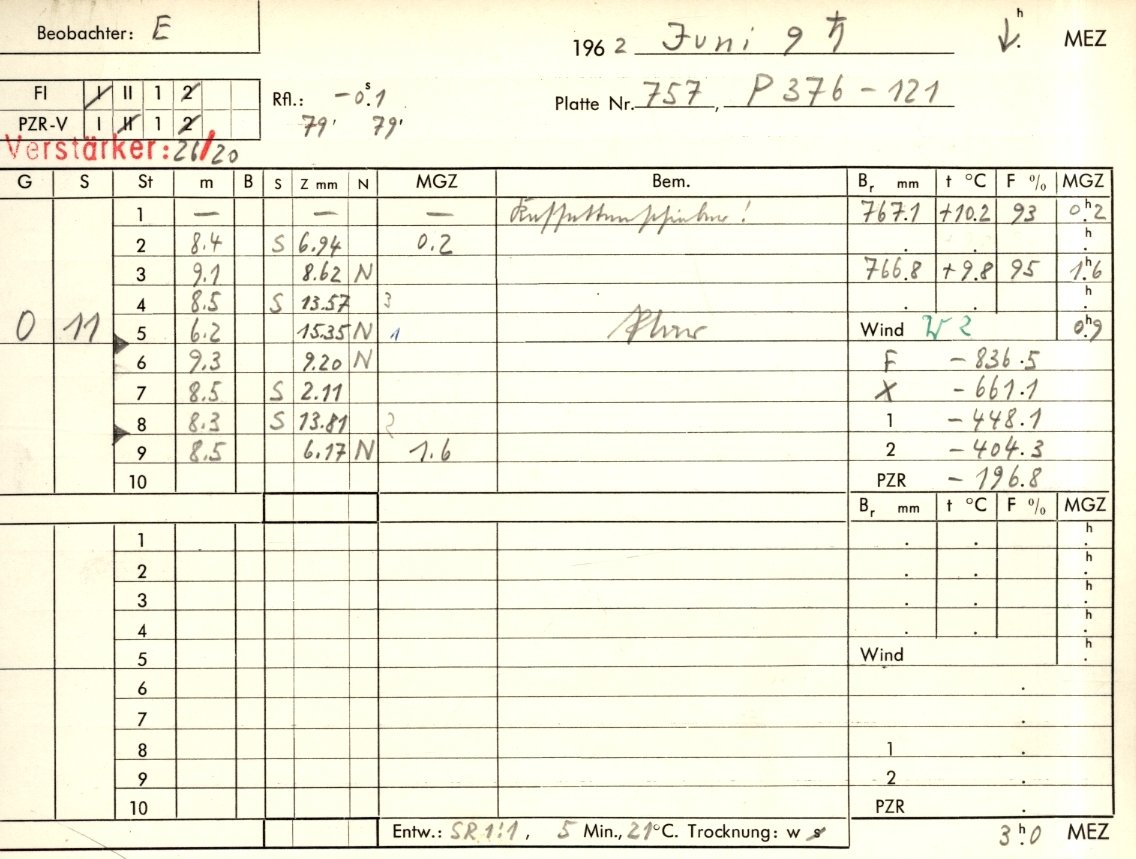 Beobachter: E
1962 Juni 9 ♄ h MEZ
FI I II 1 2
Rfl.: -0.ˢ1
Platte Nr. 757, P 376 - 121
PZR-V I II 1 2
79' 79'
Verstärker: 26/20
G S St m B S Z mm N MGZ Bem. Br mm t °C F % MGZ
1 — — — ! 767.1 +10.2 93 0.ʰ2
2 8.4 S 6.94 0.2 . . h.
3 9.1 8.62 N 766.8 +9.8 95 1.ʰ6
4 8.5 S 13.57 3 . . h.
0 11 5 6.2 15.35 N 1 Wind W 2 0.ʰ9
6 9.3 9.20 N F -836.5
7 8.5 S 2.11 X -661.1
8 8.3 S 13.81 2 1 -448.1
9 8.5 6.17 N 1.6 2 -404.3
10 PZR -196.8
Br mm t °C F % MGZ
1 . . h.
2 . . h.
3 . . h.
4 . . h.
5 Wind h.
6 .
7 .
8 1 .
9 2 .
10 PZR .
Entw.: SR 1:1, 5 Min., 21°C. Trocknung: w s
3.ʰ0 MEZ